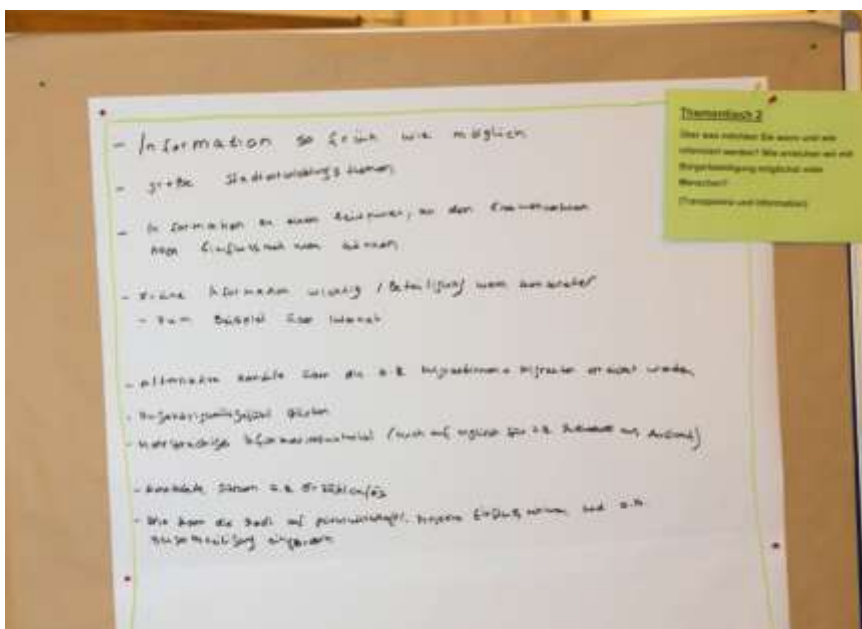 Thementisch 2
Über was möchten Sie wann und wie
informiert werden? Wie erreichen wir mit
Bürgerbeteiligung möglichst viele
Menschen?
(Transparenz und Information)
- Information so früh wie möglich
- große Stadtentwicklungsthemen
- Information zu einem Zeitpunkt, an dem
noch Einfluss nehmen können
- Information wichtig / Beteiligung wenn
- zum Beispiel über Internet
- alternative Kanäle über die z.B. Migrantinnen + Migranten erreicht werden
- stärken
- Mehrsprachiges Informationsmaterial (auch auf englisch für z.B. Studierende aus Ausland)
- z.B. Erzählcafés
- Wie kann die Stadt auf privatwirtschaftl. Projekte Einfluss nehmen und z.B.
Bürgerbeteiligung einfordern